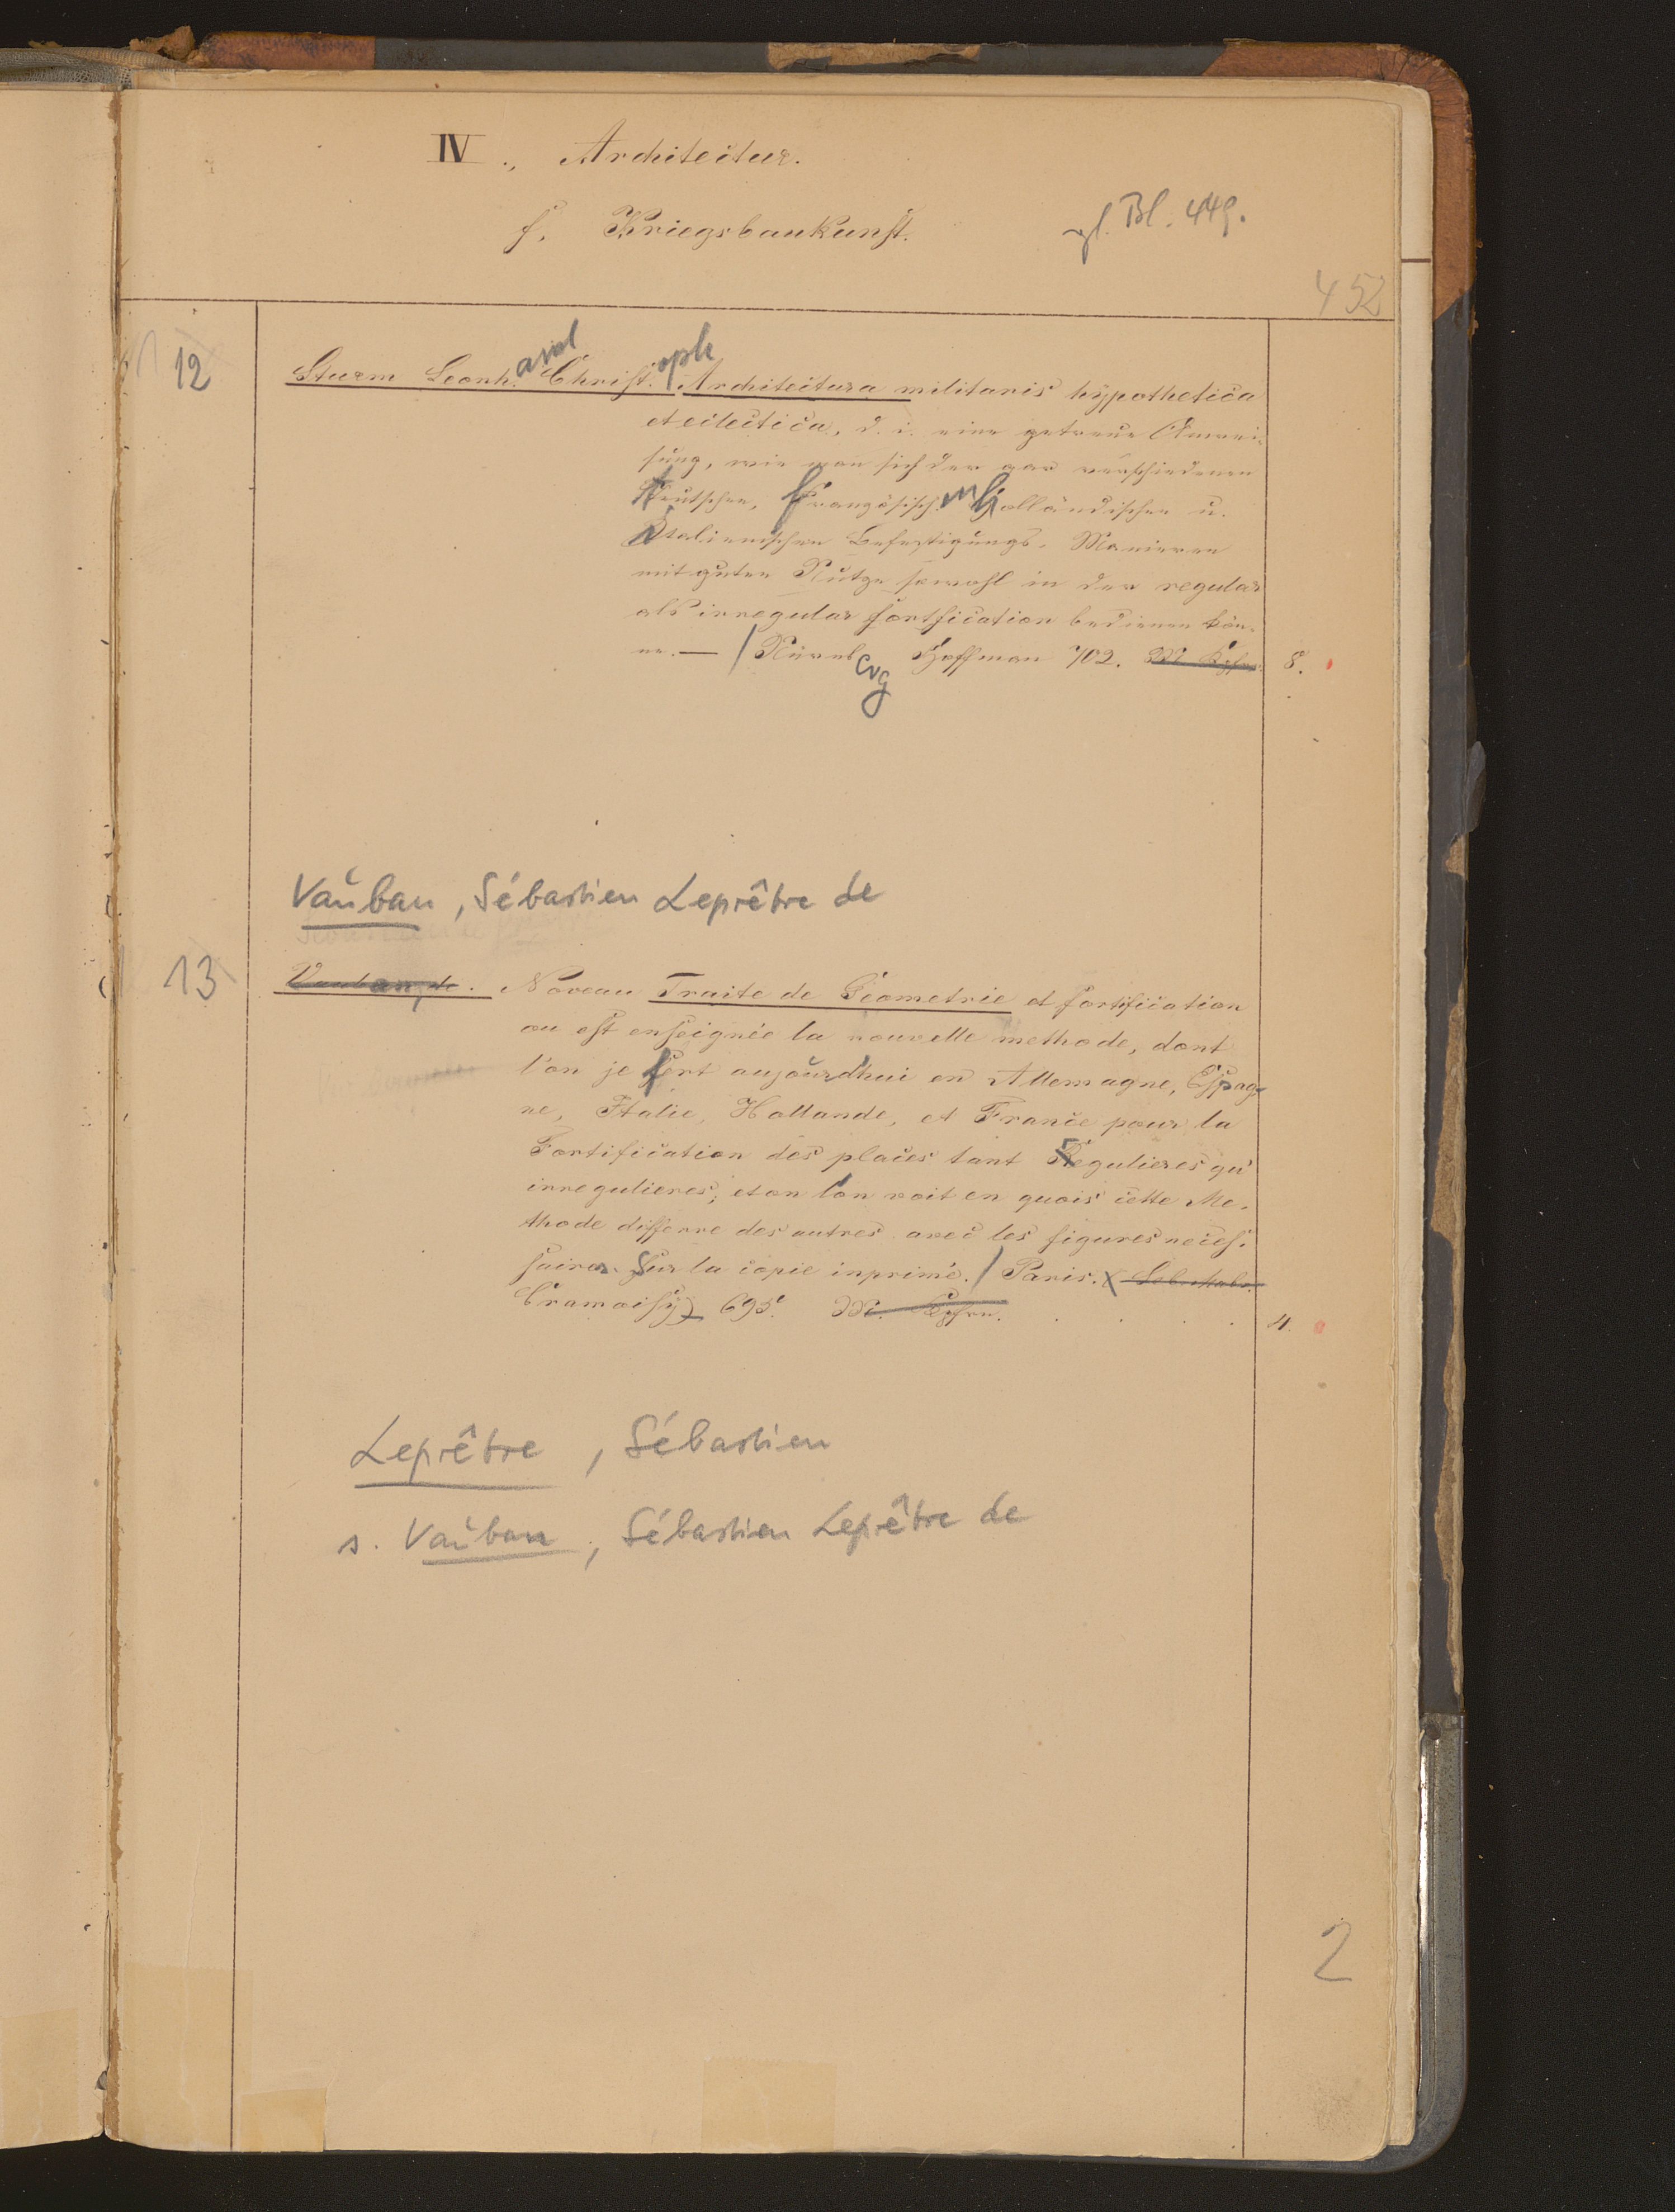 IV., Architectur.
f. Kriegsbaukunst.
vgl. Bl. 449.
452
12
Sturm Leonhard Christoph Architectura militaris hypothetica
et eclectica, d. i. eine getreue Anwei-
sung, wie man sich der gar verschiedenen
teutschen, französischen holländischen u.
italienischen Befestigungs-Manieren
mit guten Nutzen sowohl in der regular
als irregular fortification bedienen kön-
ne. — / Nürnberg Hoffman 702.
8.
Vauban, Sébastien Leprêtre de
13
Vauban, de. Noveau Traite de Géometrie et fortification
ou est enseignée la nouvelle methode, dont
l'on se sert aujourdhui en Allemagne, Espag-
ne, Italie, Hollande, et France pour la
Fortification des places tant regulieres qu'
irregulieres; et on l'on voit en quois cette Me-
thode differre des autres avec les figures neces-
saires. Sur la copie inprimé. / Paris.
Cramoisy) 695.
4.
Leprêtre, Sébastien
s. Vauban, Sébastien Leprêtre de
2